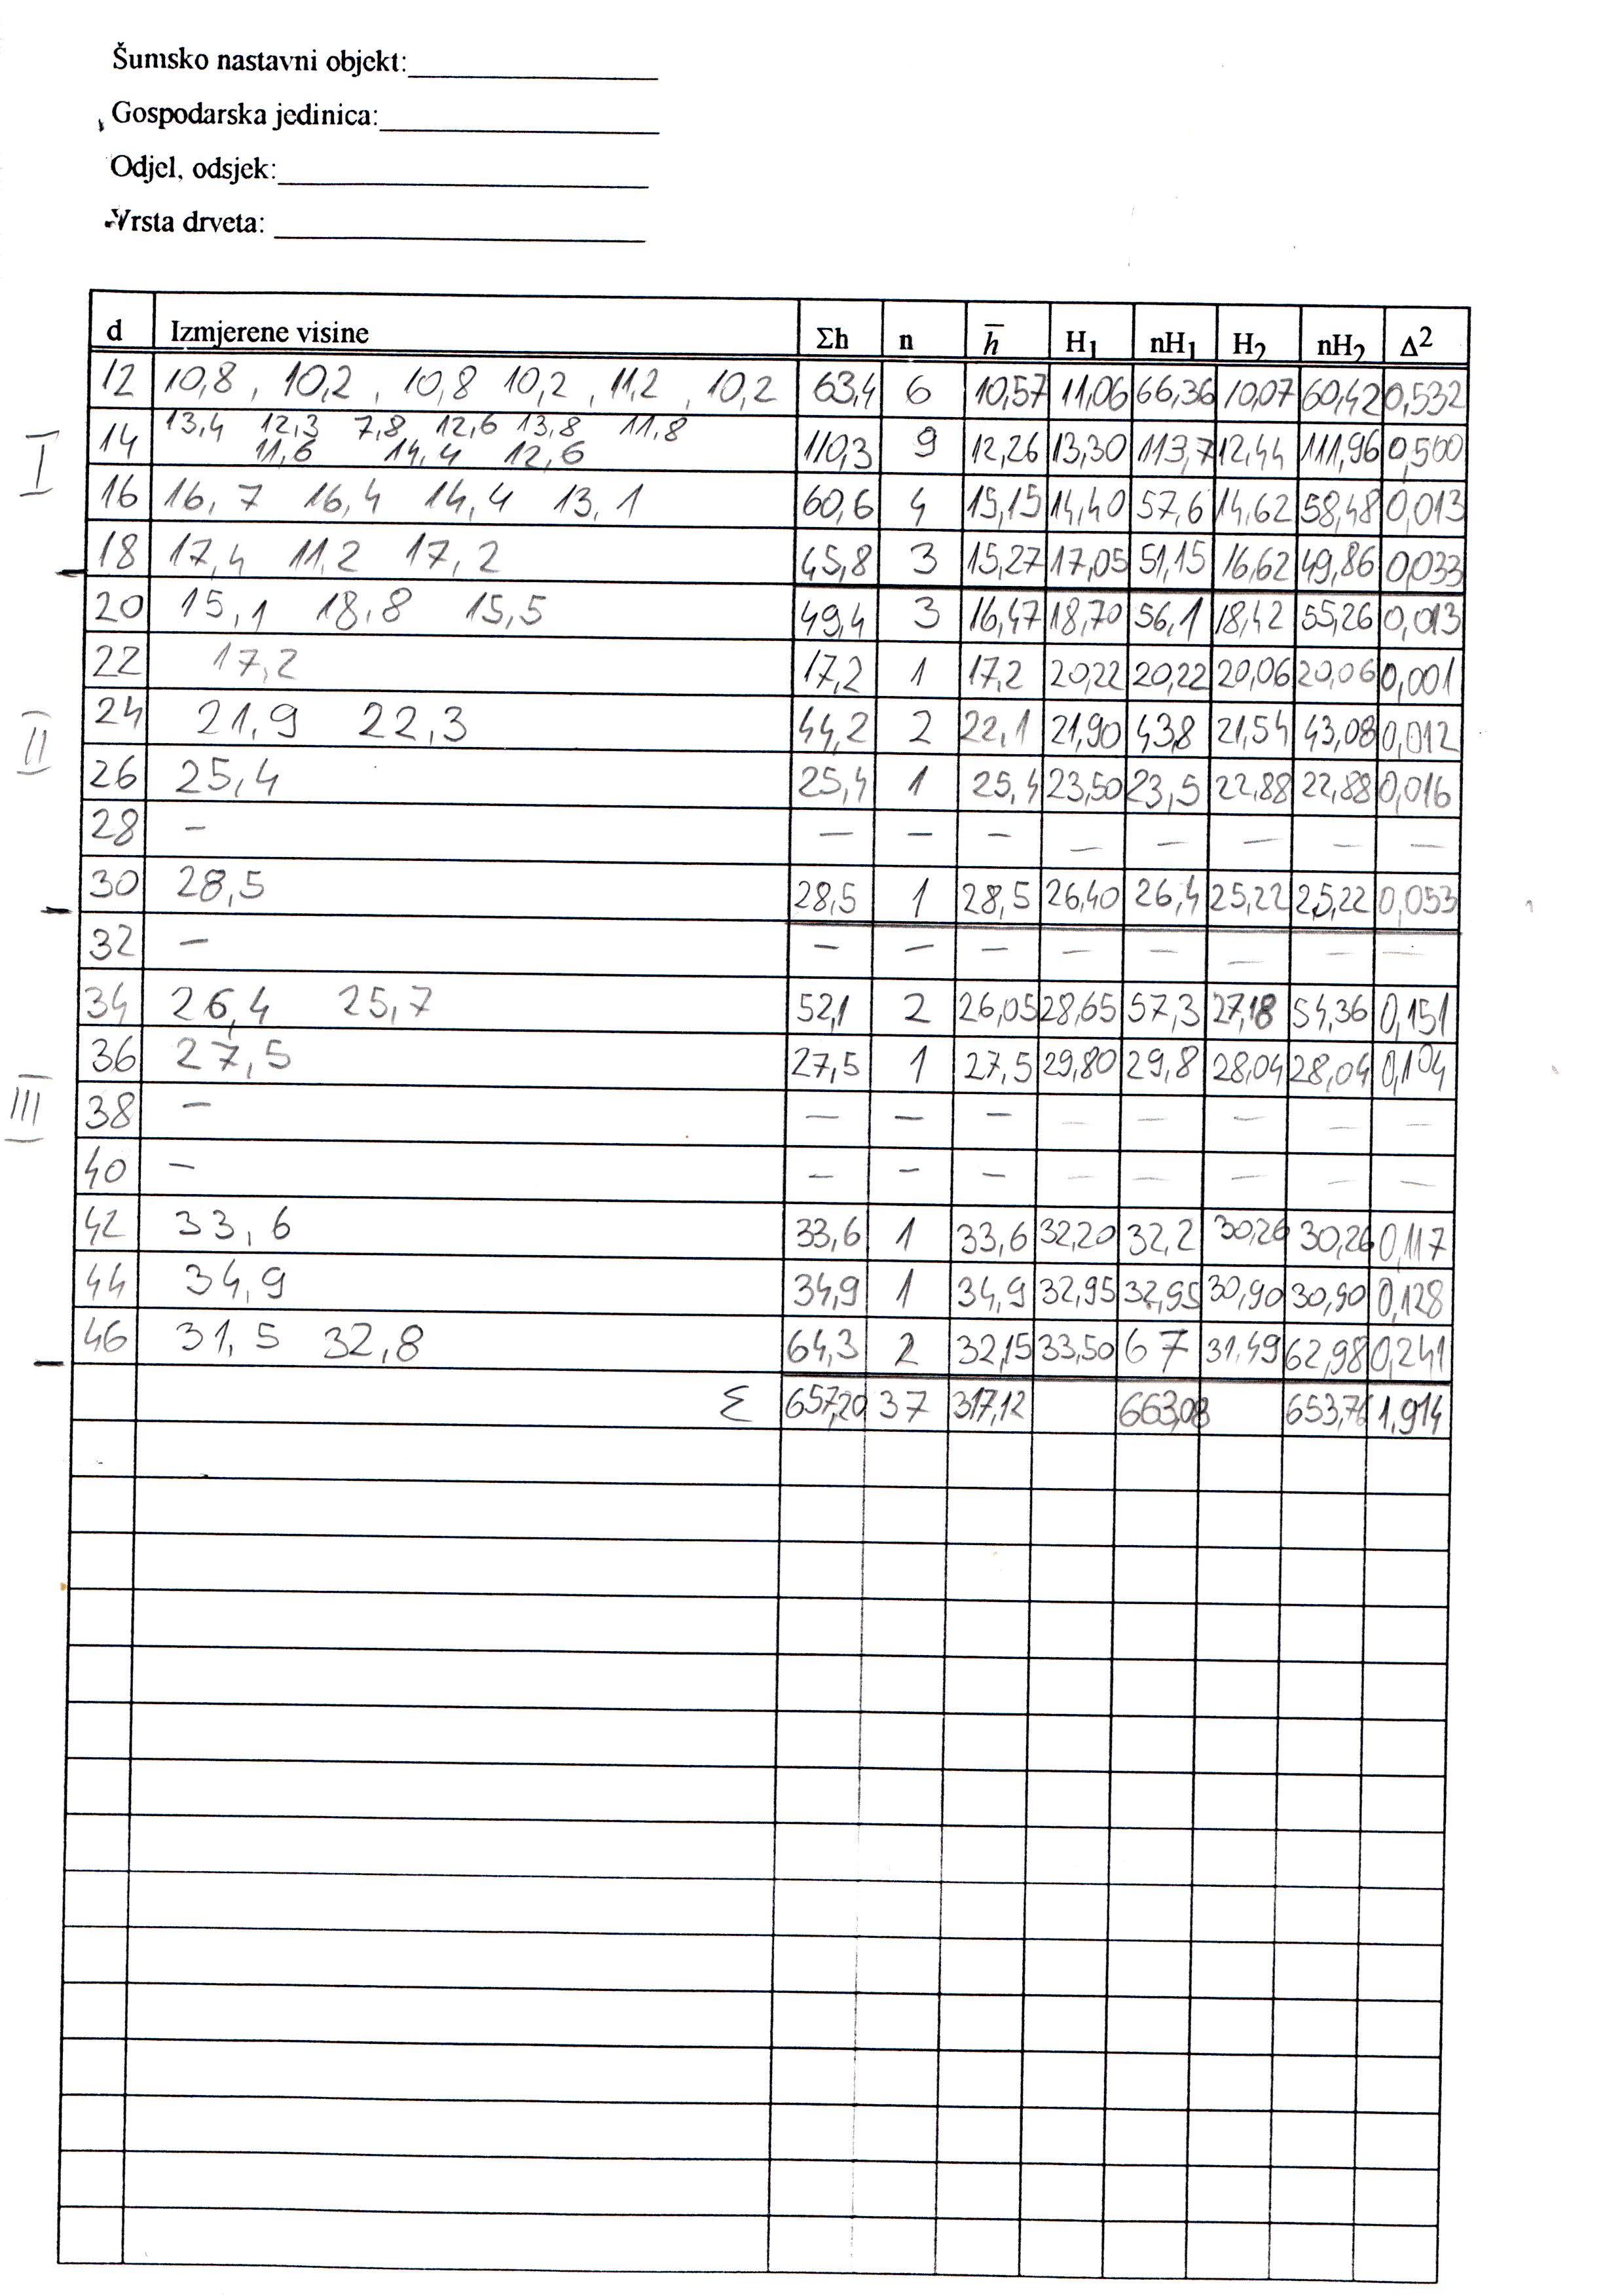 Šumsko nastavni objekt:
Gospodarska jedinica:
Odjel, odsjek:
Vrsta drveta:
d Izmjerene visine Σh n h̅ H1 nH1 H2 nH2 Δ2
12 10,8 , 10,2 , 10,8 10,2 , 11,2 , 10,2 63,4 6 10,57 11,06 66,36 10,07 60,42 0,532
13,4 12,3 7,8 12,6 13,8 11,8
I 14 11,6 14,4 12,6 110,3 9 12,26 13,30 113,7 12,44 111,96 0,500
16 16,7 16,4 14,4 13,1 60,6 4 15,15 14,40 57,6 14,62 58,48 0,013
18 17,4 11,2 17,2 45,8 3 15,27 17,05 51,15 16,62 49,86 0,033
20 15,1 18,8 15,5 49,4 3 16,47 18,70 56,1 18,42 55,26 0,013
22 17,2 17,2 1 17,2 20,22 20,22 20,06 20,06 0,001
II 24 21,9 22,3 44,2 2 22,1 21,90 43,8 21,54 43,08 0,012
26 25,4 25,4 1 25,4 23,50 23,5 22,88 22,88 0,016
28 – – – – – – – – –
30 28,5 28,5 1 28,5 26,40 26,4 25,22 25,22 0,053
32 – – – – – – – – –
34 26,4 25,7 52,1 2 26,05 28,65 57,3 27,18 54,36 0,151
36 27,5 27,5 1 27,5 29,80 29,8 28,04 28,04 0,104
III 38 – – – – – – – – –
40 – – – – – – – – –
42 33,6 33,6 1 33,6 32,20 32,2 30,26 30,26 0,117
44 34,9 34,9 1 34,9 32,95 32,95 30,90 30,90 0,128
46 31,5 32,8 64,3 2 32,15 33,50 67 31,49 62,98 0,241
Σ 657,20 37 317,12 663,08 653,76 1,914